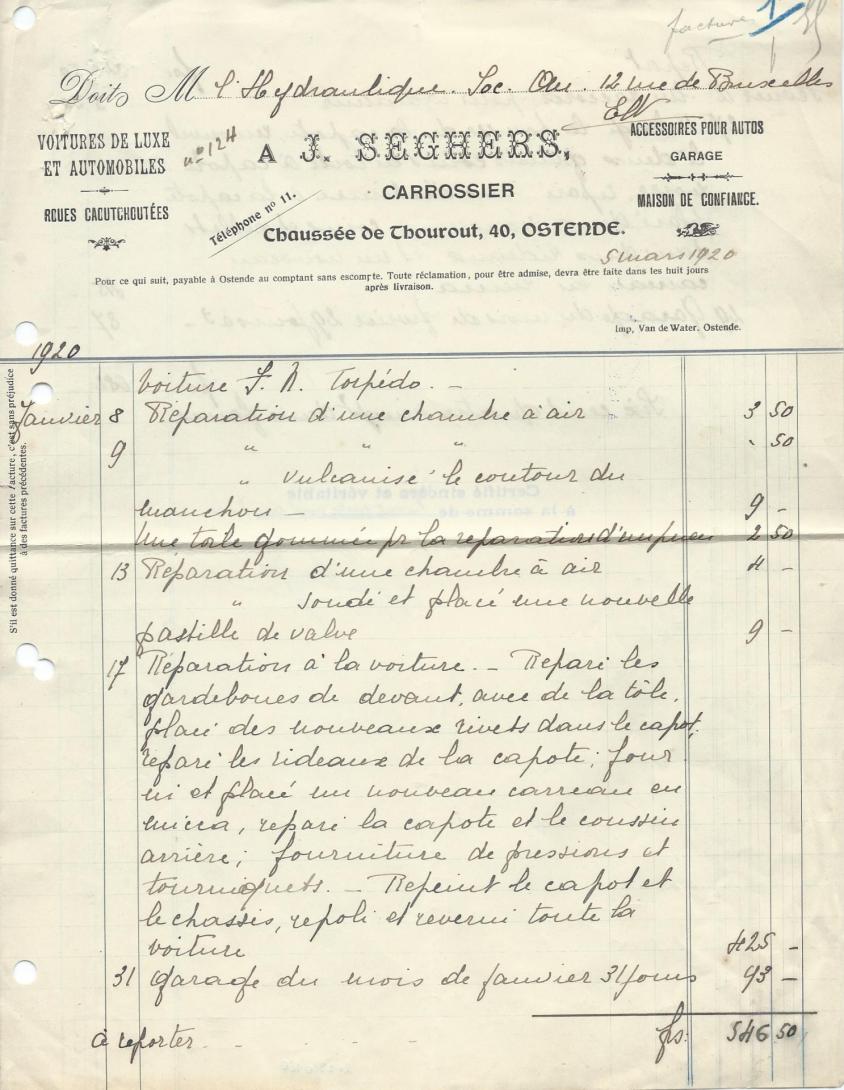 facture 1
Doit M l'Hydraulique. Soc. An. 12 rue de Bruxelles
E/V
VOITURES DE LUXE
ET AUTOMOBILES
ROUES CAOUTCHOUTÉES
n° 124
A J. SEGHERS,
CARROSSIER
Téléphone n° 11.
Chaussée de Thourout, 40, OSTENDE.
ACCESSOIRES POUR AUTOS
GARAGE
MAISON DE CONFIANCE.
5 mars 1920
Pour ce qui suit, payable à Ostende au comptant sans escompte. Toute réclamation, pour être admise, devra être faite dans les huit jours
après livraison.
Imp, Van de Water. Ostende.
S'il est donné quittance sur cette facture, c'est sans préjudice
à des factures précédentes.
1920
Voiture F. N. Torpédo. -
Janvier 8 Réparation d'une chambre à air 3 50
9 " " " " 50
" vulcanisé le contour du
manchon - 9 -
Une toile gommée pr la réparation d'un pneu 2 50
13 Réparation d'une chambre à air 4 -
" soudé et placé une nouvelle
pastille de valve 9 -
17 Réparation à la voiture. - Réparé les
gardeboues de devant, avec de la tôle,
placé des nouveaux rivets dans le capot,
réparé les rideaux de la capote; four
ni et placé un nouveau carreau en
micca, réparé la capote et le coussin
arrière; fourniture de pressions et
tourniquets. - Repeint le capot et
le chassis, repoli et reverni toute la
voiture 425 -
31 garage du mois de janvier 31 jours 93 -
à reporter - - frs: 546 50